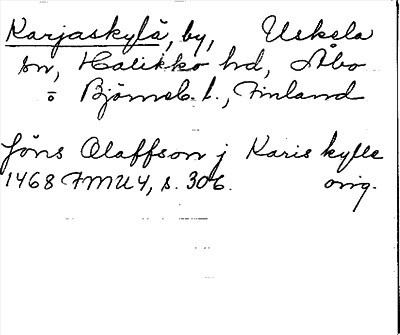 Karjaskylä, by, Uskela
sn, Halikko hd, Åbo
o Björneb. l., Finland
Jöns Olaffson j Karis kylle
1468 FMU 4, s. 306. orig.